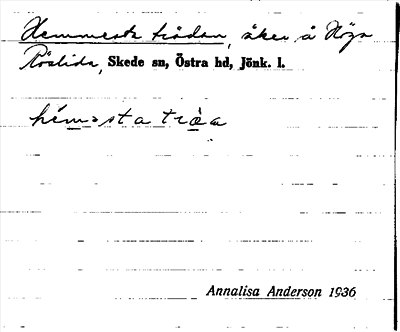 Hemmesta trädan, åker å Höga
Röslida, Skede sn, Östra hd, Jönk. l.
hémosta trӓa
Annalisa Anderson 1936